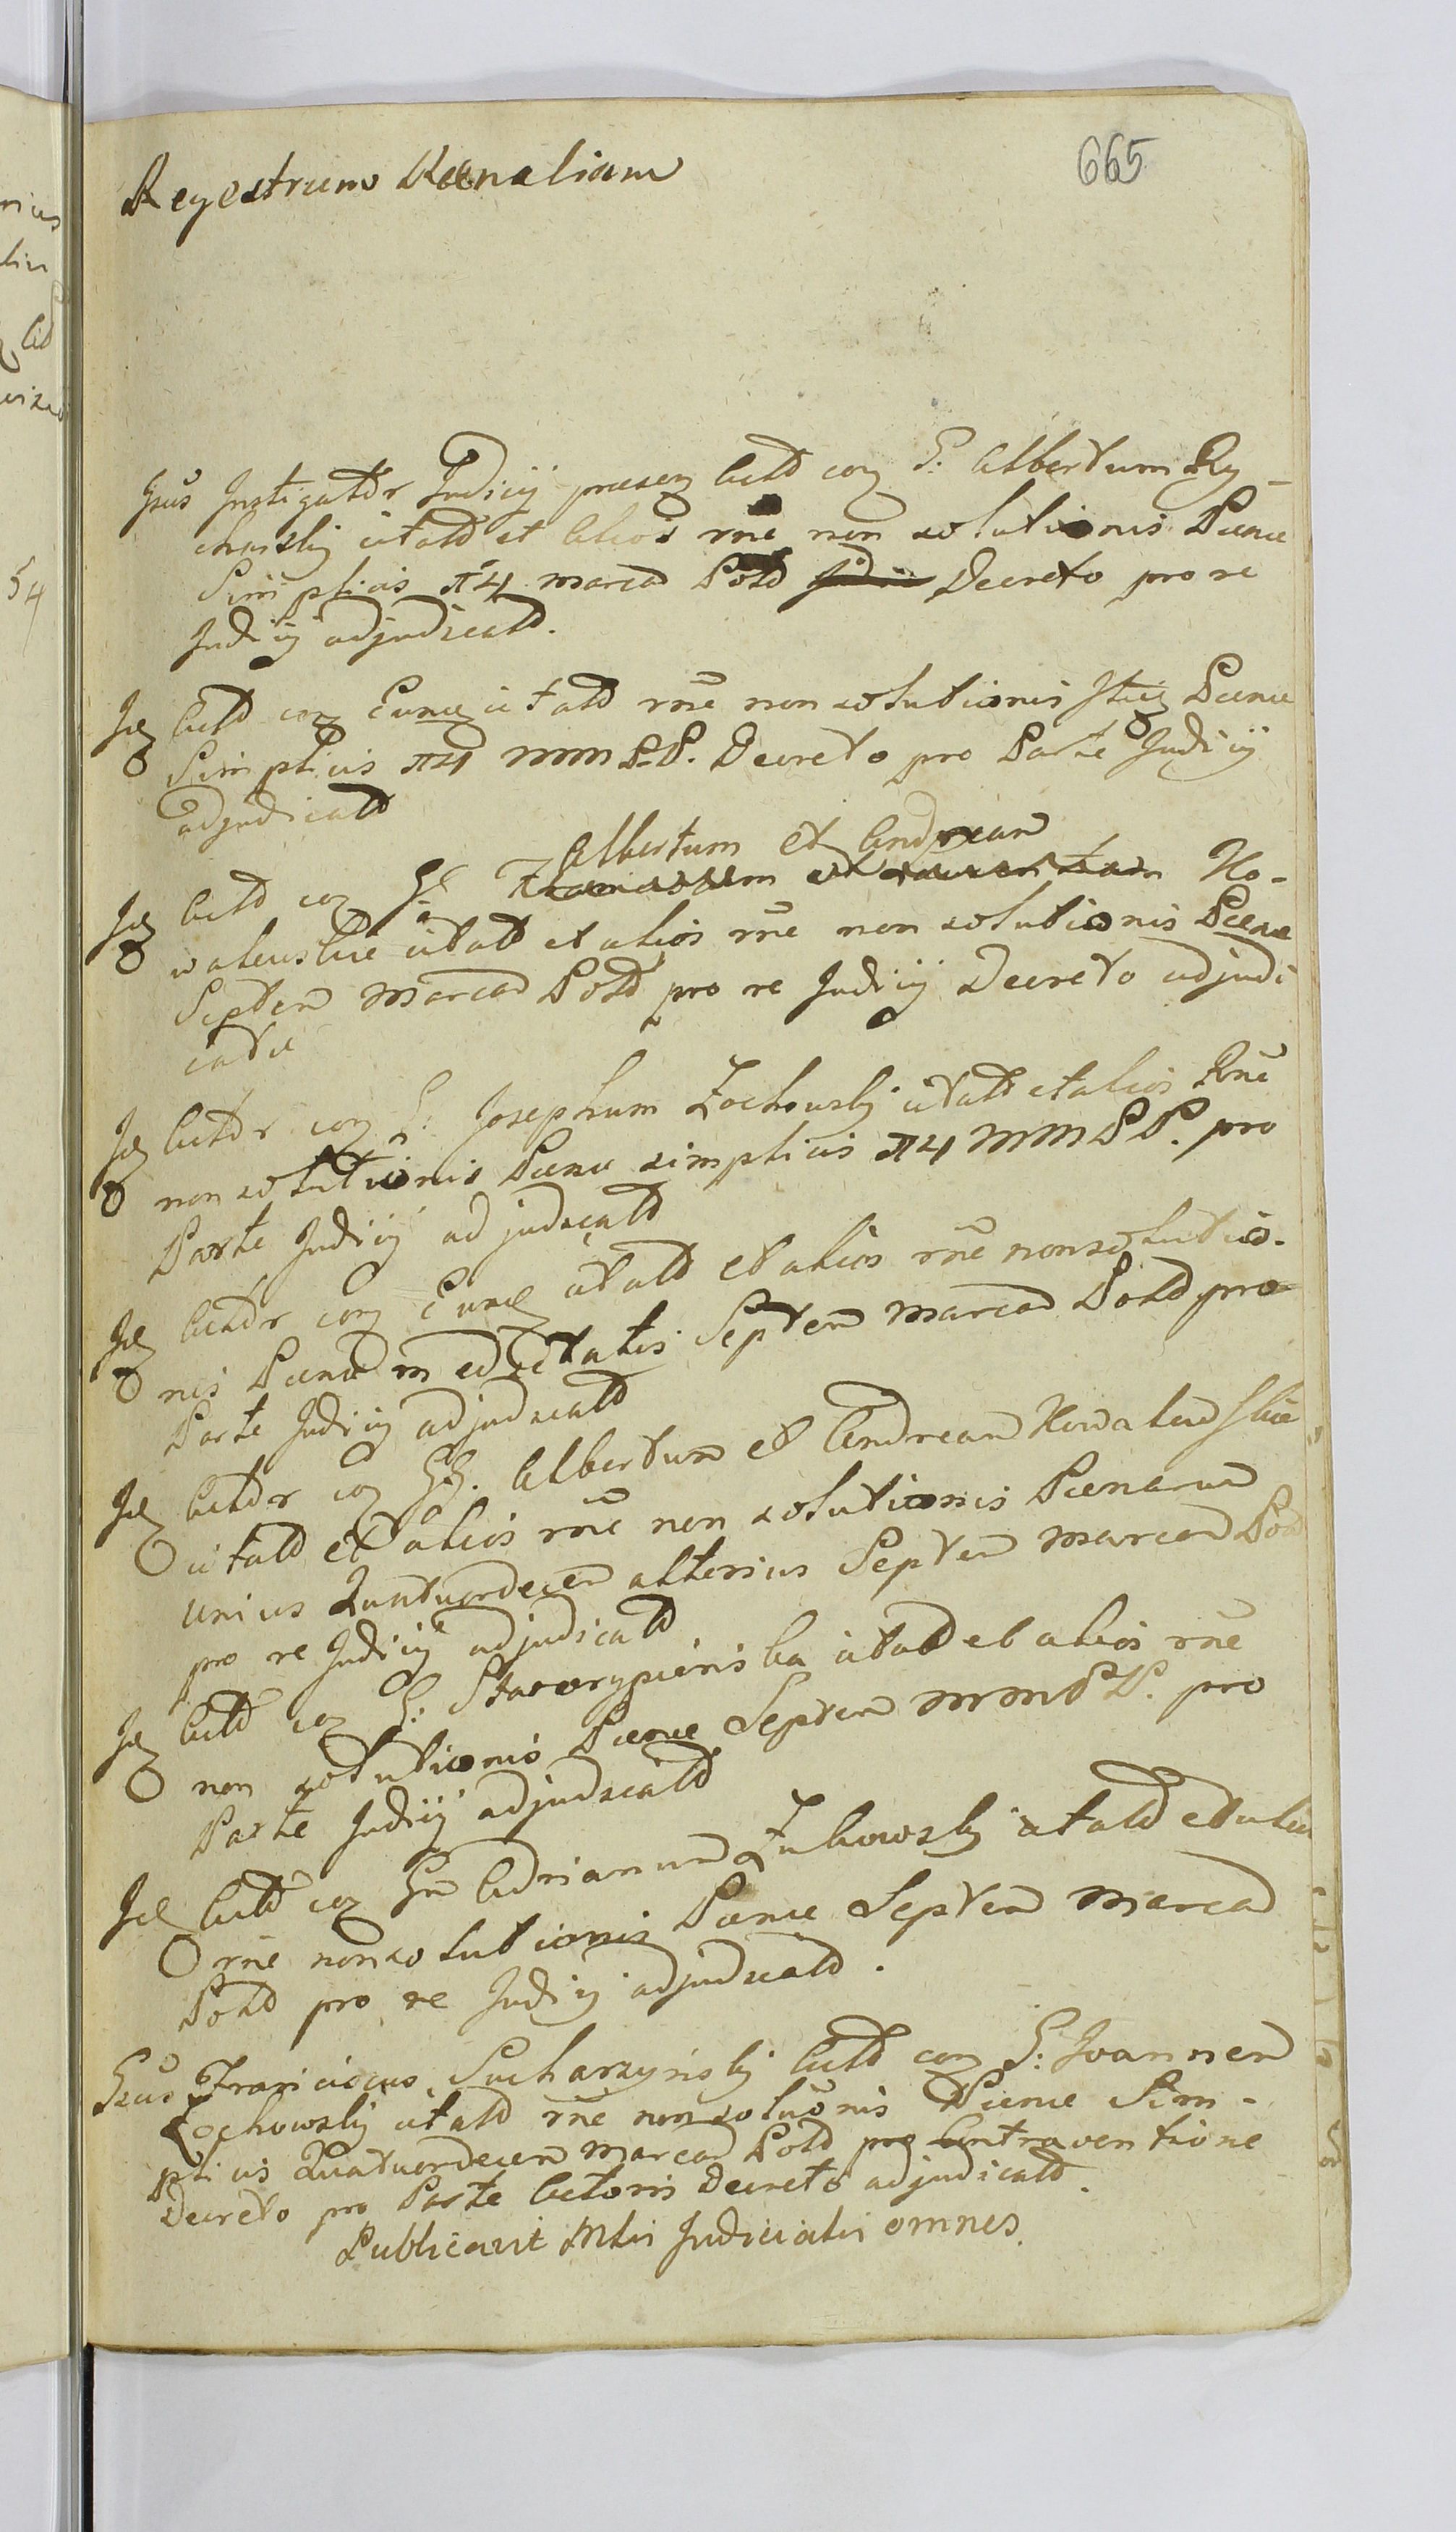 665
Regestrum Poenalium
Gsus Instigator Judicij praesens Actor con G: Albertum Ry-
charski citatum et alios rne non solutionis Poenae
Simplicis π4 marcar Pold Decreto pro re
Judicij adjudicatd.
Id Actd con Eund citatd rne non solutionis Poenae
Simplicis π4 mm PP. Decreto pro Parte Judicij
adjudicatd
Albertum et Andream
Id Actd con GG Ko-
walewskie citatd et alios rne non solutionis Poenae
Septem marcar Pold pro re Judicij Decreto adjudi
catae
Id Actor con G: Josephum Zochowski citatd et alios Rne
non solutionis Poenae simplicis π4 mm PP. pro
Parte Judicij adjudicatd
Id Actor con Eund citatd et alios rne non solutio-
nis Poenae medietatis Septem marcar Pold pro
Parte Judicij adjudicatd
Id Actor con GG. Albertum et Andream Kowalewskie
citatd et alios rne non solutionis Poenarum
unius Quatuordecem alterius Septem marcar Pold
pro re Judicij adjudicatd
Id Actd con G: citatd et alios rne
non solutionis Poenae Septem mm PP. pro
Parte Judicij adjudicatd
Id Actd con Gm Adrianum Zukowski citatd et alios
rne non solutionis Poenae Septem marcar
Pold pro re Judicij adjudicatd.
Gsus Franciscus Sucharzynski Actd con G: Joannem
Zochowski citatd rne non solutionis Poenae Sim-
plicis Quatuordecem marcar Pold pro Contraventione
Decreto pro Parte Actoris Decreto adjudicatd.
Publicavit Mlis Judicialis omnes
54